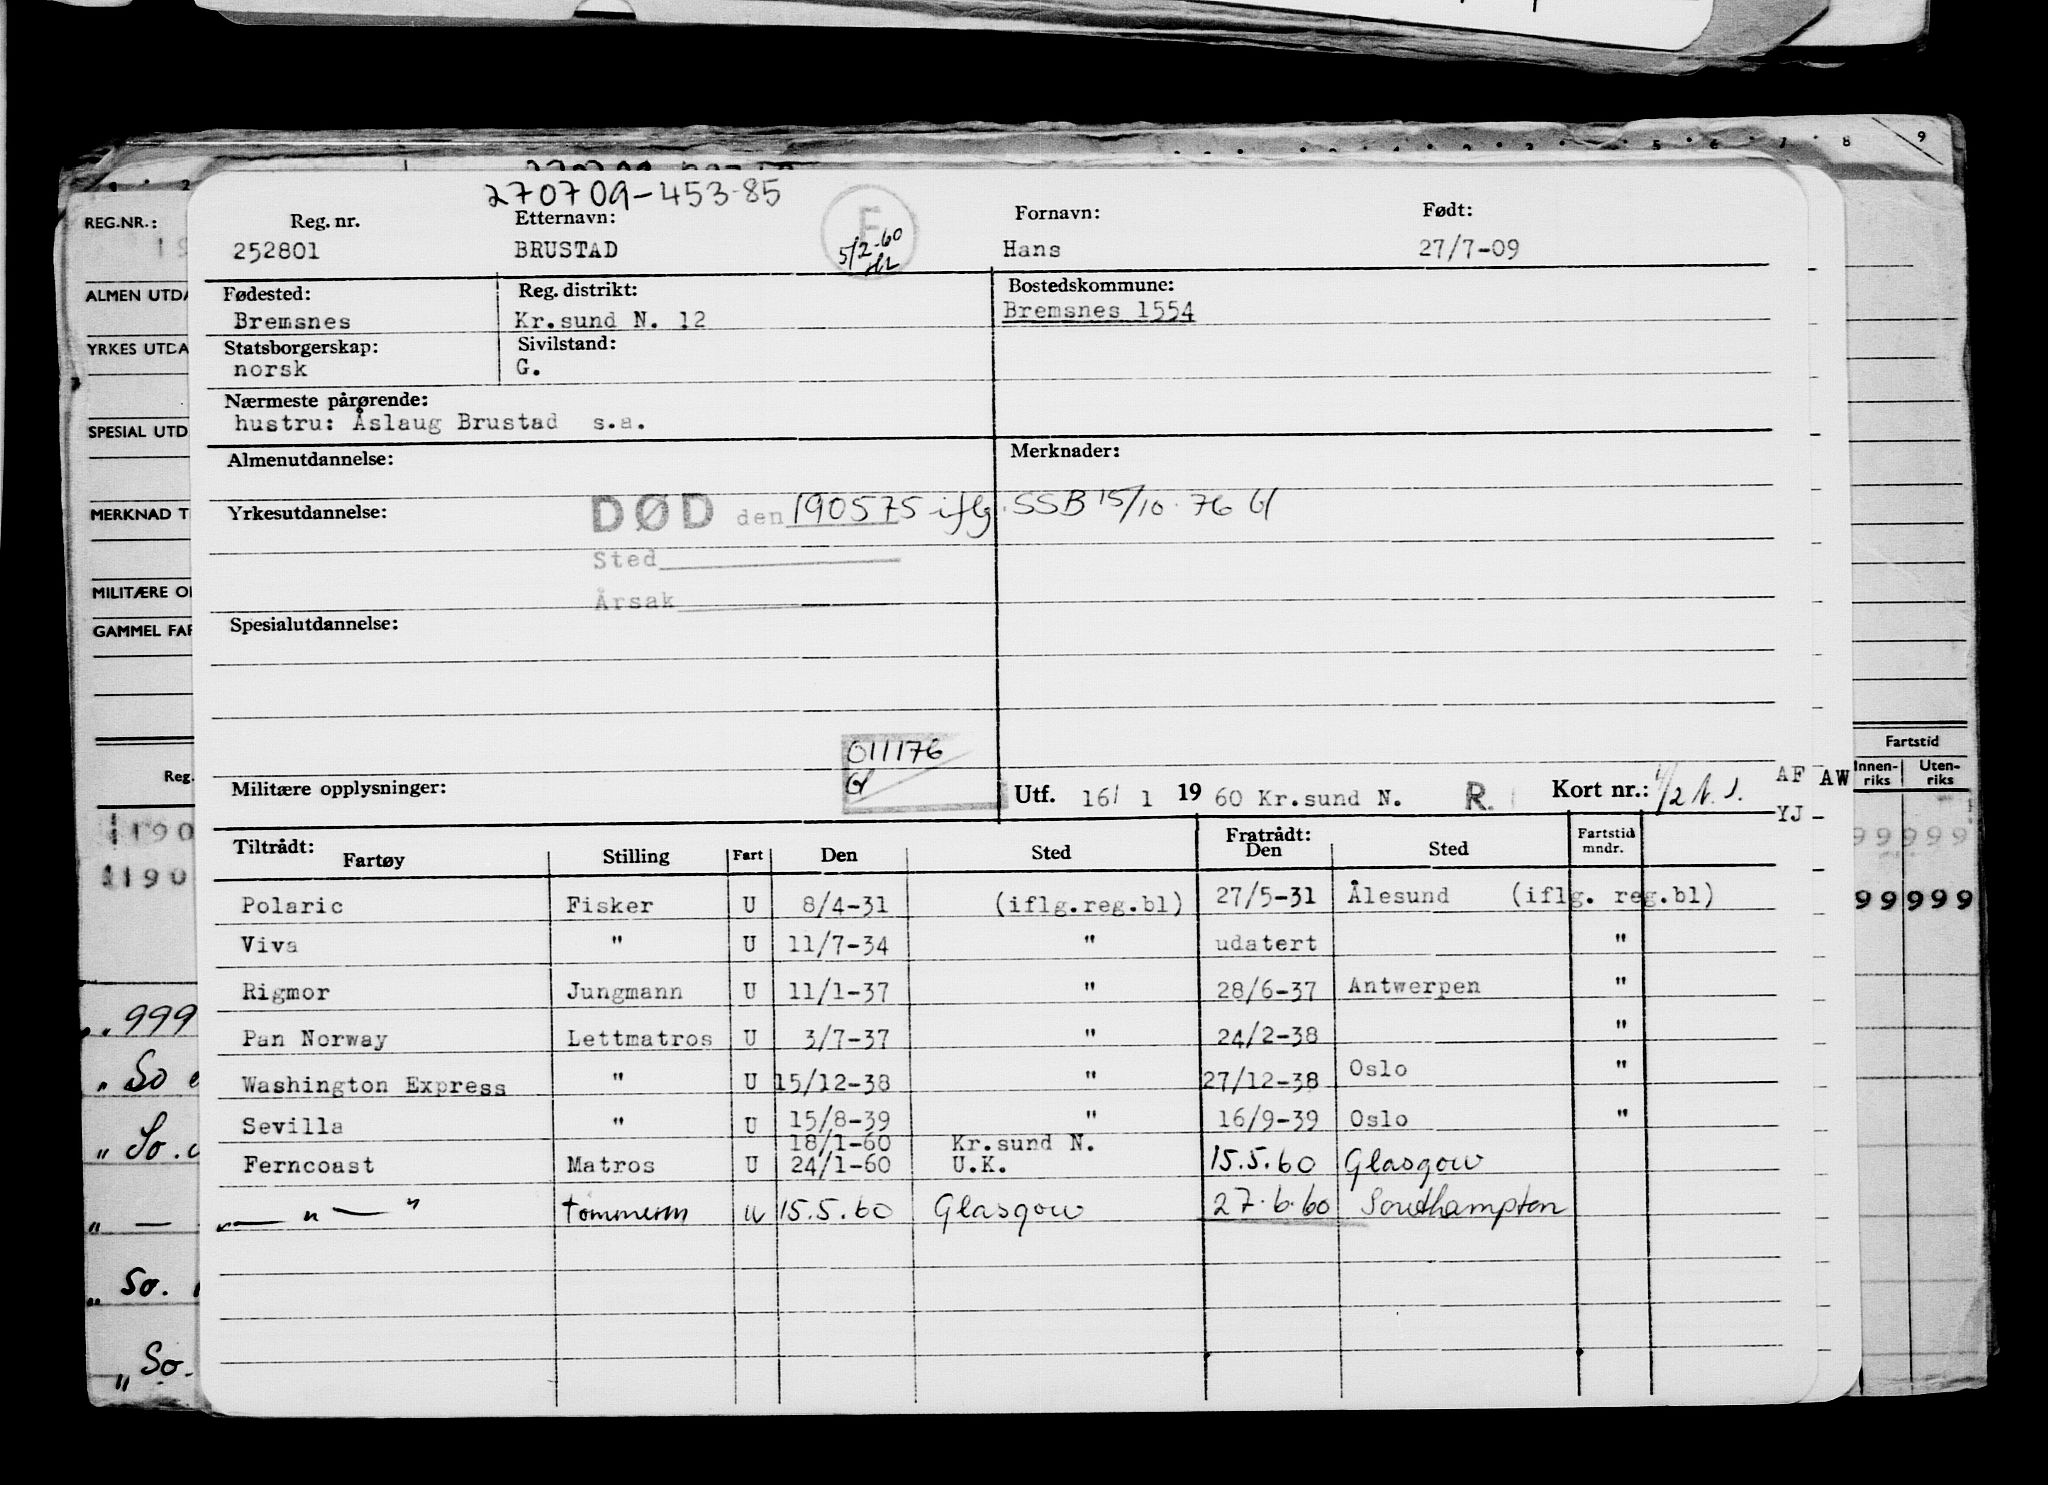 9
8
REG.NR.:
270709-453-85
Reg. nr. Etternavn: Fornavn: Født:
252801 BRUSTAD Hans 27/7-09
F
5/2-60
ALMEN UTDA
Fødested: Reg. distrikt: Bostedskommune:
Bremsnes Kr.sund N. 12 Bremsnes 1554
YRKES UTDA
Statsborgerskap: Sivilstand:
norsk G.
Nærmeste pårørende:
hustru: Åslaug Brustad s.a.
SPESIAL UTD
Almenutdannelse: Merknader:
MERKNAD T
Yrkesutdannelse: DØD den 190575 iflg. SSB 15/10.76 G
Sted
Årsak
MILITÆRE O
GAMMEL FAR
Spesialutdannelse:
011176
G
Militære opplysninger: Utf. 16/ 1 19 60 Kr.sund N. R. Kort nr.: 1/2
AF AW
YJ
Fartstid
Innen-riks Uten-riks
Reg.
Tiltrådt: Fratrådt:
Fartøy Stilling Fart Den Sted Den Sted Fartstid mndr.
Polaric Fisker U 8/4-31 (iflg.reg.bl) 27/5-31 Ålesund (iflg. reg.bl)
Viva " U 11/7-34 " udatert "
Rigmor Jungmann U 11/1-37 " 28/6-37 Antwerpen "
Pan Norway Lettmatros U 3/7-37 " 24/2-38 "
Washington Express " U 15/12-38 " 27/12-38 Oslo "
Sevilla " U 15/8-39 " 16/9-39 Oslo "
18/1-60 Kr.sund N.
Ferncoast Matros U 24/1-60 U.K. 15.5.60 Glasgow
" — " — " tømmerm U 15.5.60 Glasgow 27.6.60 Southampton
190
190
99999
99999
" 999
" So
" So.
" —
" So.
" So.